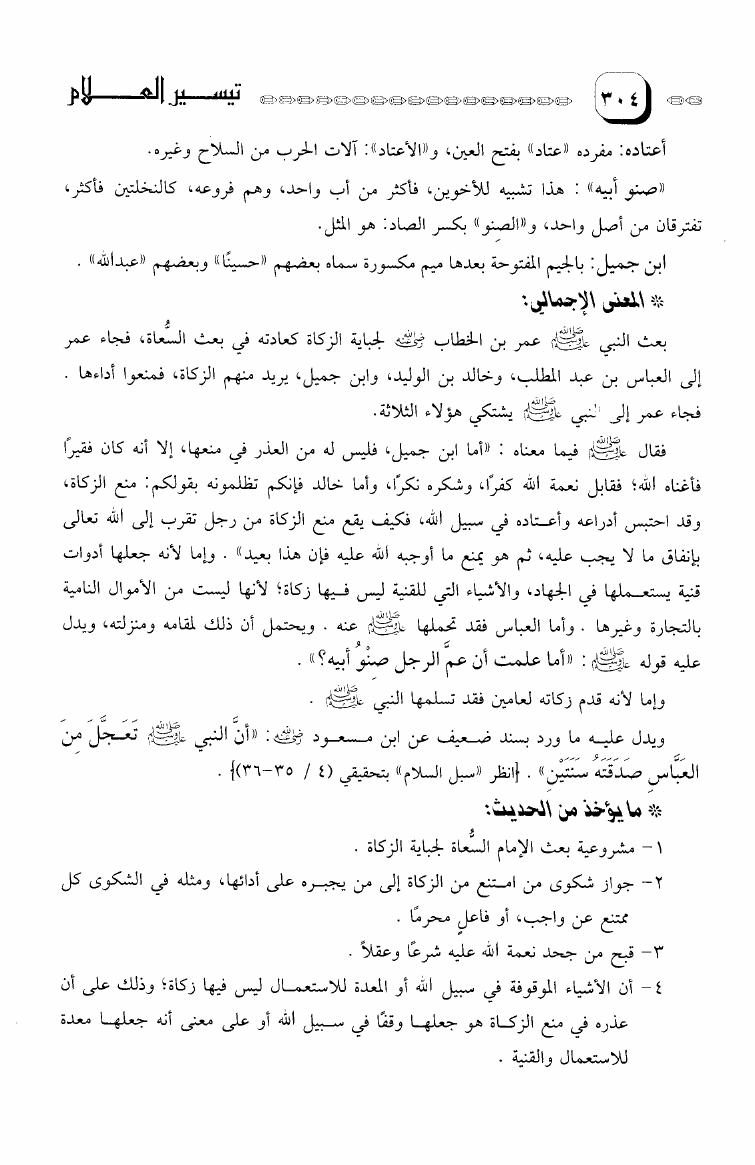 ٣٠٤ تيسير العلام
أعتاده: مفرده «عتاد» بفتح العين، و«الأعتاد»: آلات الحرب من السلاح وغيره.
«صنو أبيه» : هذا تشبيه للأخوين، فأكثر من أب واحد، وهم فروعه، كالنخلتين فأكثر،
تفترقان من أصل واحد، و«الصِنو» بكسر الصاد: هو المثل.
ابن جميل: بالجيم المفتوحة بعدها ميم مكسورة سماه بعضهم «حسينًا» وبعضهم «عبدالله» .
* المعنى الإجمالي:
بعث النبي ﷺ عمر بن الخطاب رضي الله عنه لجباية الزكاة كعادته في بعث السُّعاة، فجاء عمر
إلى العباس بن عبد المطلب، وخالد بن الوليد، وابن جميل، يريد منهم الزكاة، فمنعوا أداءها .
فجاء عمر إلى النبي ﷺ يشتكي هؤلاء الثلاثة.
فقال ﷺ فيما معناه : «أما ابن جميل، فليس له من العذر في منعها، إلا أنه كان فقيرًا
فأغناه الله؛ فقابل نعمة الله كفرًا، وشكره نكرًا، وأما خالد فإنكم تظلمونه بقولكم: منع الزكاة،
وقد احتبس أدراعه وأعتاده في سبيل الله، فكيف يقع منع الزكاة من رجل تقرب إلى الله تعالى
بإنفاق ما لا يجب عليه، ثم هو يمنع ما أوجبه الله عليه فإن هذا بعيد» . وإما لأنه جعلها أدوات
قنية يستعملها في الجهاد، والأشياء التي للقنية ليس فيها زكاة؛ لأنها ليست من الأموال النامية
بالتجارة وغيرها . وأما العباس فقد تحملها ﷺ عنه . ويحتمل أن ذلك لمقامه ومنزلته، ويدل
عليه قوله ﷺ : «أما علمت أن عمَّ الرجل صِنْوُ أبيه؟» .
وإما لأنه قدم زكاته لعامين فقد تسلمها النبي ﷺ .
ويدل عليه ما ورد بسند ضعيف عن ابن مسعود رضي الله عنه: «أنَّ النبي ﷺ تَعَجَّلَ مِنَ
العَبَّاسِ صَدَقَتَهُ سَنَتَيْنِ» . {انظر «سبل السلام» بتحقيقي (٤ / ٣٥-٣٦)} .
* ما يؤخذ من الحديث:
١- مشروعية بعث الإمام السُّعاة لجباية الزكاة .
٢- جواز شكوى من امتنع من الزكاة إلى من يجبره على أدائها، ومثله في الشكوى كل
ممتنع عن واجب، أو فاعلٍ محرمًا .
٣- قبح من جحد نعمة الله عليه شرعًا وعقلاً .
٤- أن الأشياء الموقوفة في سبيل الله أو المعدة للاستعمال ليس فيها زكاة؛ وذلك على أن
عذره في منع الزكاة هو جعلها وقفًا في سبيل الله أو على معنى أنه جعلها معدة
للاستعمال والقنية .